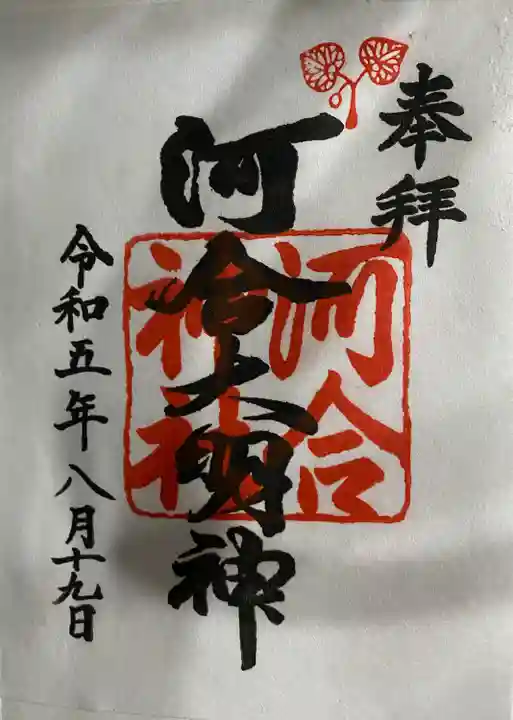 奉拝
河合大明神
河合
神社
令和五年八月十九日